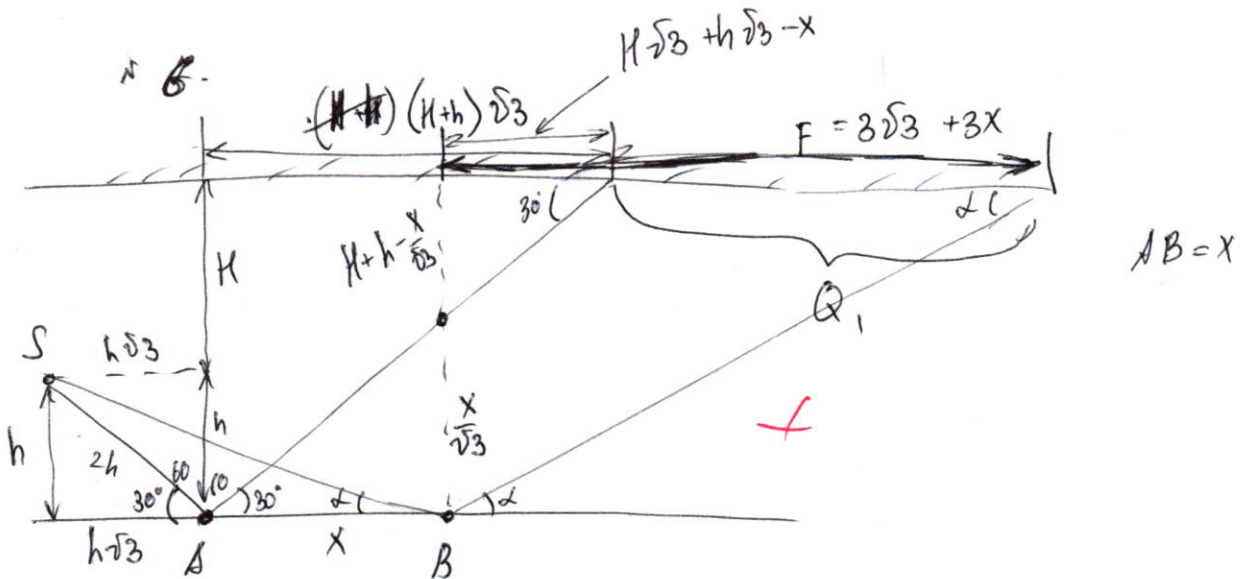 N 6.
H√3 + h√3 − x
(H+h) √3
F = 3√3 + 3x
30°
α
H + h − x/√3
H
AB = x
Q₁
S
h√3
h
x/√3
h
2h
60
60
30°
30°
α
α
h√3
A
x
B